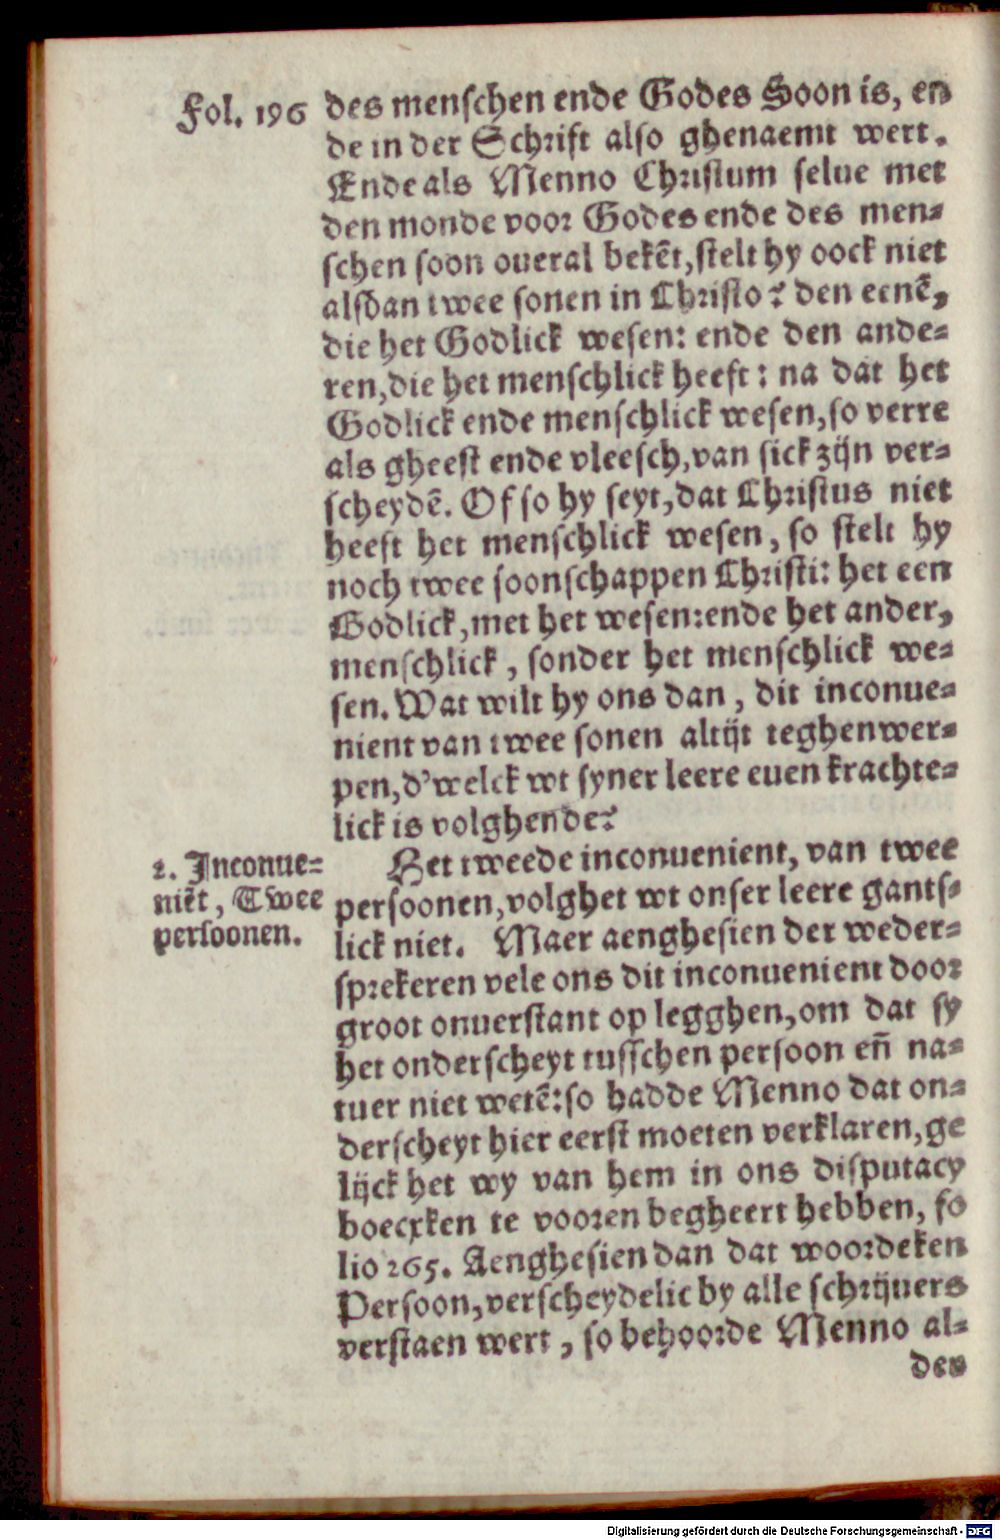 Fol. 196
des menschen ende Godes Soon is, en
de in der Schrift also ghenaemt wert.
Ende als Menno Christum selue met
den monde voor Godes ende des men-
schen soon oueral bekēt, stelt hy oock niet
alsdan twee sonen in Christo? den eenē,
die het Godlick wesen: ende den ande-
ren, die het menschlick heeft: na dat het
Godlick ende menschlick wesen, so verre
als gheest ende vleesch, van sick zijn ver-
scheydē. Of so hy seyt, dat Christus niet
heeft het menschlick wesen, so stelt hy
noch twee soonschappen Christi: het een
Godlick, met het wesen: ende het ander,
menschlick, sonder het menschlick we-
sen. Wat wilt hy ons dan, dit inconue-
nient van twee sonen altijt teghenwer-
pen, d'welck wt syner leere euen krachte-
lick is volghende?
2. Inconue-
niēt, Twee
persoonen.
Het tweede inconuenient, van twee
persoonen, volghet wt onser leere gants-
lick niet. Maer aenghesien der weder-
sprekeren vele ons dit inconuenient door
groot onuerstant op legghen, om dat sy
het onderscheyt tusschen persoon eñ na-
tuer niet wetē: so hadde Menno dat on-
derscheyt hier eerst moeten verklaren, ge
lijck het wy van hem in ons disputacy
boecxken te vooren begheert hebben, fo
lio 265. Aenghesien dan dat woordeken
Persoon, verscheydelic by alle schrijuers
verstaen wert, so behoorde Menno al-
der
Digitalisierung gefördert durch die Deutsche Forschungsgemeinschaft - DFG